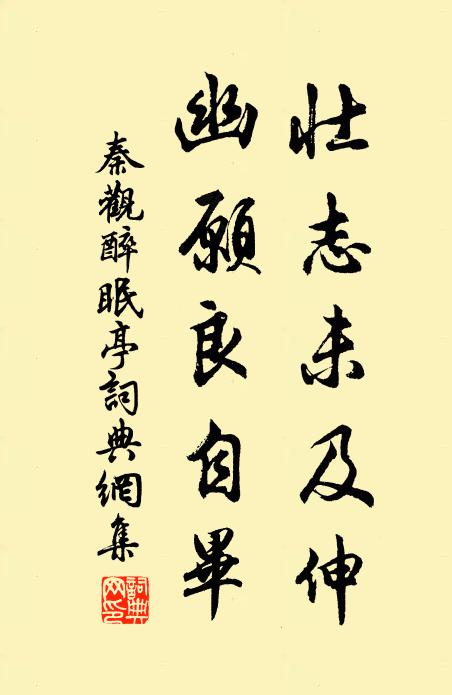 壯志未及伸
幽願良自畢
秦觀醉眠亭詞典網集
詞典網印